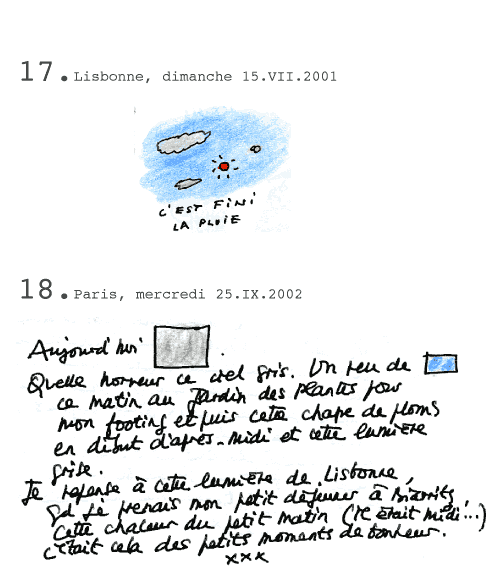 17. Lisbonne, dimanche 15.VII.2001
C'EST FINI
LA PLUIE
18. Paris, mercredi 25.IX.2002
Aujourd'hui .
Quelle horreur ce ciel gris. Un peu de
ce matin au Jardin des plantes pour
mon footing et puis cette chape de plomb
en début d'après-midi et cette lumière
grise.
Je repense à cette lumière de Lisbonne,
qd je prenais mon petit déjeuner à Biarritz,
cette chaleur du petit matin (il était midi...)
c'était cela des petits moments de bonheur.
xxx